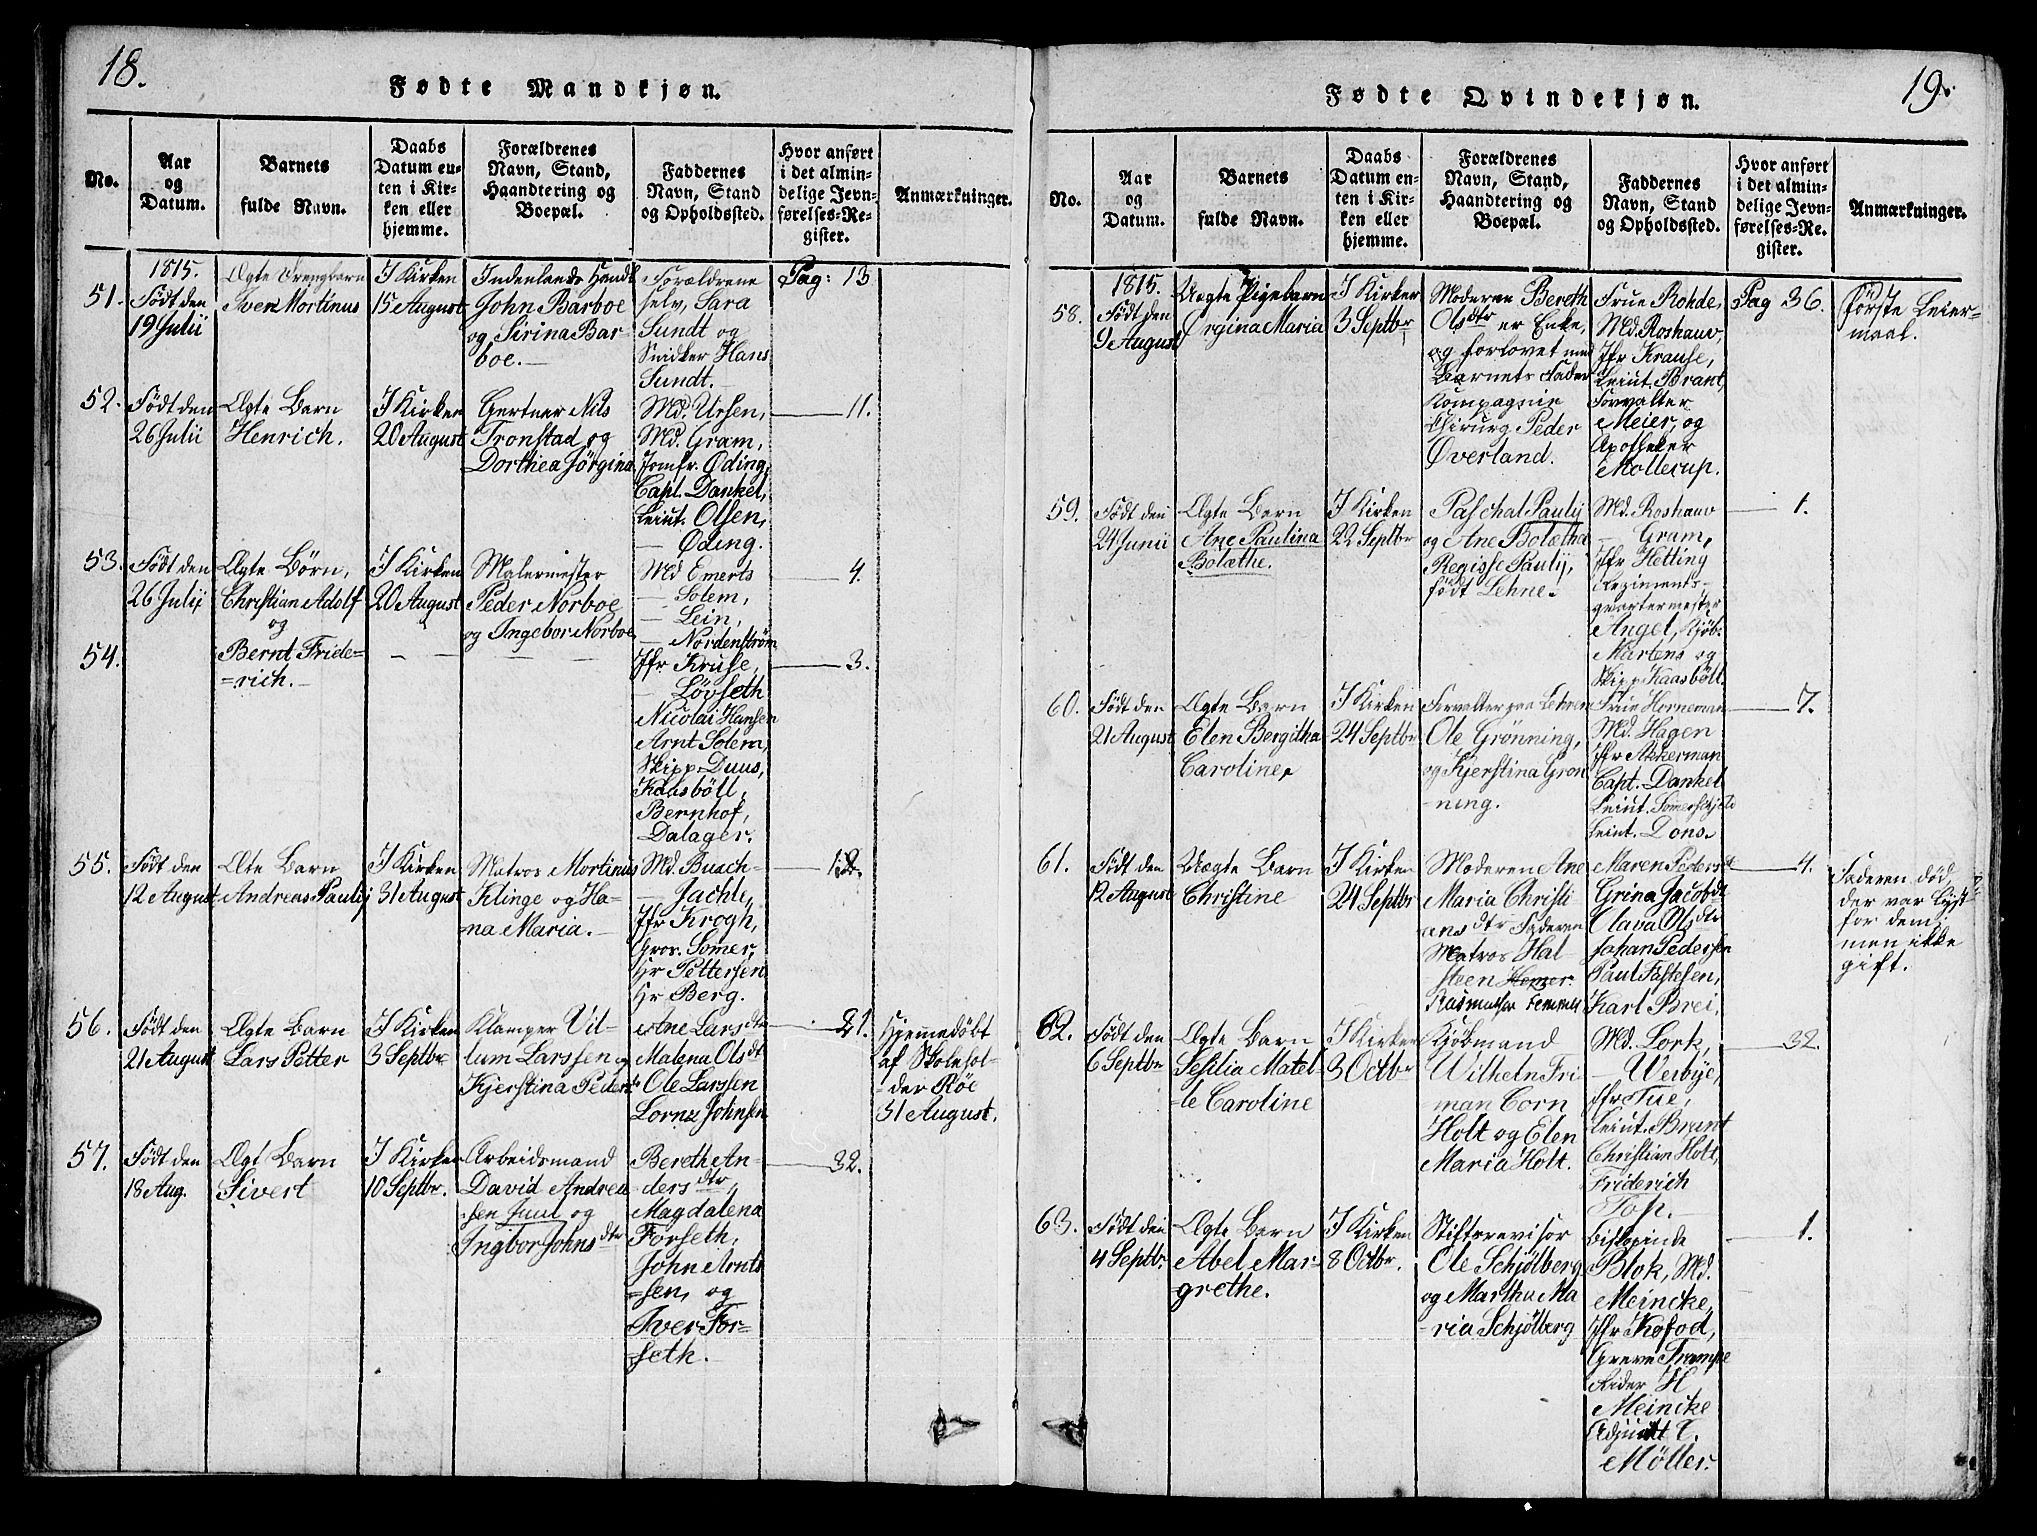 18.
Fødte Mandkjøn.
No.
Aar
og
Datum.
Barnets
fulde Navn.
Daabs
Datum en-
ten i Kir-
ken eller
hjemme.
Forældrenes
Navn, Stand,
Haandtering og
Boepæl.
Faddernes
Navn, Stand
og Opholdssted.
Hvor anført
i det almin-
delige Jevn-
førelses-Re-
gister.
Anmærkninger.
51.
1815.
Født den
19 Julii
Ægte Drengbarn
Iver Mortinus
I Kirken
15 August
Indenlands Handl
John Barboe
og Sirina Bar-
boe.
Forældrene
selv, Sara
Sundt og
Snidker Hans
Sundt.
Pag: 13
52.
Født den
26 Julii
Ægte Barn
Henrich.
I Kirken
20 August
Gertner Nils
Tronstad og
Dorthea Jørgina
Md. Ursen,
Md. Gram,
Jomfr. Øding,
Capt. Dankel,
Leiut. Olsen,
— Øding.
11.
53.
Født den
26 Julij
Ægte Børn,
Christian Adolf
og
I Kirken
20 August
Malermester
Peder Norboe
og Ingebor Norboe
Md Emerts
— Solem,
— Lein,
— Nordenstrøm
4.
54.
Bernt Fride=
=rich.
— —
Jfr Kruse,
— Løvseth
Nicolai Hansen
Arnt Solem,
Skipp Duus,
Kaasbøll,
Bernhof,
Dalager.
3.
55.
Født den
12 August
Ægte Barn
Andreas Paulij
I Kirken
31 August
Matros Mortinus
Klinge og Ha-
na Maria.
Md. Busch-
— Jachle,
Jfr Krogh,
Gros. Somer,
Hr Pettersen
Hr Berg.
12.
56.
Født den
21 August
Ægte Barn
Lars Petter
I Kirken
3 Septbr
Klamper Vil-
lum Larssen og
Kjerstina Pedersdtr
Ane Larsdtr
Malena Olsdt
Ole Larssen
Lornz Johnsen
21.
Hjemedøbt
af Skolehol-
der Røe
31 August.
57.
Født den
18 Aug.
Ægt Barn
Sivert
I Kirken
10 Septbr.
Arbeidsmand
David Andrea
sen Juul og
Ingbor Johnsdtr
Bereth An-
dersdtr,
Magdalena
Forseth,
John Arnts
=sen, og
Iver For=
seth.
32.
19.
Fødte Qvindekjøn.
No.
Aar
og
Datum.
Barnets
fulde Navn.
Daabs
Datum en-
ten i Kir-
ken eller
hjemme.
Forældrenes
Navn, Stand,
Haandtering og
Boepæl.
Faddernes
Navn, Stand
og Opholdssted.
Hvor anført
i det almin-
delige Jevn-
førelses-Re-
gister.
Anmærkninger.
58.
1815.
Født den
9 August
Uægte Pigebarn
Irgina Maria
I Kirken
3 Septbr
Moderen Bereth
Olsdtr er Enke,
og forlovet med
Barnets Fader
Kompagnie
Chirurg Peder
Øverland.
Frue Rohde,
Md. Roshauv,
Jfr Krause,
Leiut. Brant,
Forvalter
Meier, og
Apotheker
Mollerup.
Pag 36.
første Leier-
maal.
59.
Født den
24 Junii
Ægte Barn
Ane Paulina
Bolæthe.
I Kirken
22 Septbr
Paschal Paulij
og Ane Bolætha
Regisse Paulij,
født Lehne.
Md. Roshauv
— Gram,
Jfr Hetting
Regiments-
qvartermester
Angel, Kjøb.
Martens og
Skipp Kaasbøll.
1.
60.
Født den
21 August
Ægte Barn
Elen Bergitha
Caroline,
I Kirken
24 Septbr
Forvalter paa Lehren
Ole Grønning,
og Kjerstina Grøn
-ning.
Frue Horneman
Md. Hagen
Jfr Akkerman
Capt. Dankel
Leiut. Somerschjeld
Leiut. Dons.
7.
61.
Født den
12 August
Uægte Barn
Christine
I Kirken
24 Septbr
Moderen Ane
Maria Christi
ansdtr Faderen
Matros Hal
steen
Maren Pedersdt
Grina Jacobdt
Olava Olsdtr
Johan Pedersen
Paul Fastesen,
Karl Brei,
4.
Faderen død,
der var lyst
for dem,
men ikke
gift.
62.
Født den
6 Septbr
Ægte Barn
Sesilia Matel-
le Caroline
I Kirken
3 Octbr
Kjøbmand
Wilhelm Fri
man Corn
Holt og Elen
Maria Holt.
Md. Lork,
— Weibye,
Jfr Tue,
Leiut. Brant
Christian Holt,
Friderich
Top.
32.
63.
Født den
4 Septbr.
Ægte Barn
Abel Mar-
grethe.
I Kirken
8 Octbr.
Stiftsrevisor
Ole Schjølberg
og Martha Ma
-ria Schjølberg
Bispinde
Blok, Md.
Meincke,
Jfr Kofod,
Greve Trampe
Rider H
Meincke
Adjudt T.
Møller.
1.